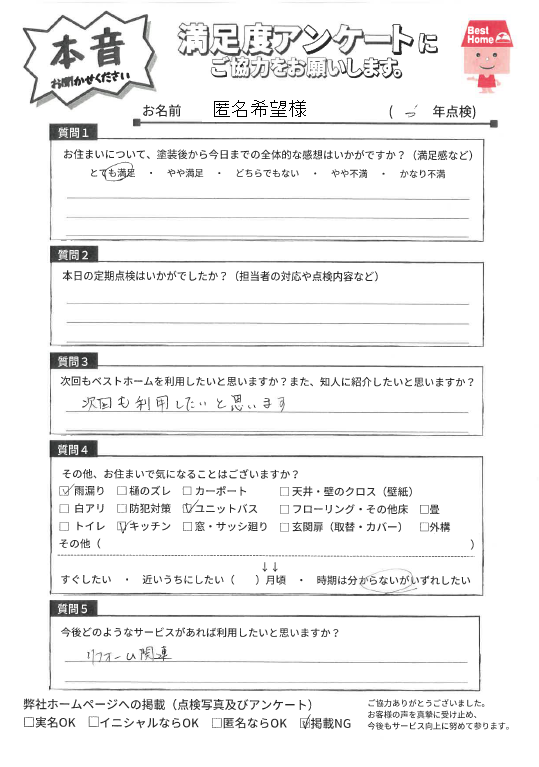 本音
お聞かせください
満足度アンケートに
ご協力をお願いします。
Best Home
お名前 匿名希望様 ( 年点検)
質問1
お住まいについて、塗装後から今日までの全体的な感想はいかがですか?(満足感など)
とても満足 ・ やや満足 ・ どちらでもない ・ やや不満 ・ かなり不満
質問2
本日の定期点検はいかがでしたか?(担当者の対応や点検内容など)
質問3
次回もベストホームを利用したいと思いますか?また、知人に紹介したいと思いますか?
次回も利用したいと思います
質問4
その他、お住まいで気になることはございますか?
☑雨漏り □樋のズレ □カーポート □天井・壁のクロス(壁紙)
□白アリ □防犯対策 ☑ユニットバス □フローリング・その他床 □畳
□トイレ ☑キッチン □窓・サッシ廻り □玄関扉(取替・カバー) □外構
その他( )
↓↓
すぐしたい ・ 近いうちにしたい( )月頃 ・ 時期は分からないがいずれしたい
質問5
今後どのようなサービスがあれば利用したいと思いますか?
リフォーム関連
弊社ホームページへの掲載(点検写真及びアンケート)
□実名OK □イニシャルならOK □匿名ならOK ☑掲載NG
ご協力ありがとうございました。
お客様の声を真摯に受け止め、
今後もサービス向上に努めて参ります。